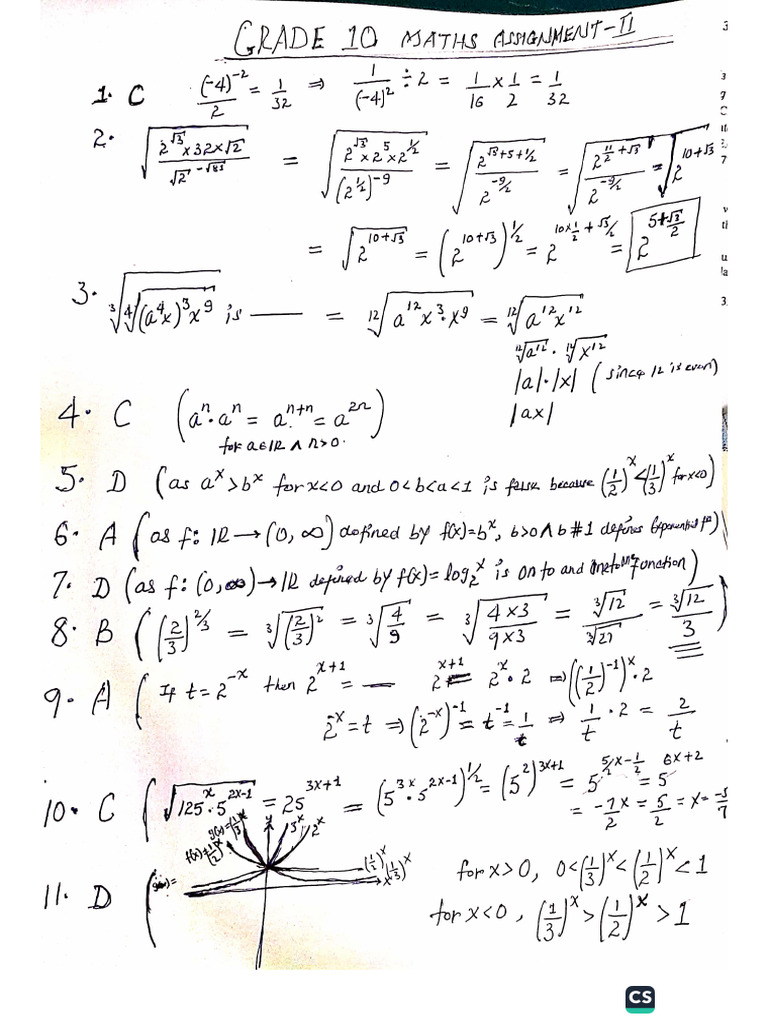 GRADE 10 MATHS ASSIGNMENT-II
1. C (-4)^-2/2 = 1/32 ⇒ 1/(-4)^2 ÷ 2 = 1/16 × 1/2 = 1/32
2. √(2^√3 × 32 × √2 / √2^-√81) = √(2^√3 × 2^5 × 2^1/2 / (2^1/2)^-9) = √(2^(√3+5+1/2) / 2^-9/2) = √(2^(11/2+√3) / 2^-9/2) = √2^(10+√3)
= √2^(10+√3) = (2^(10+√3))^1/2 = 2^(10×1/2+√3/2) = 2^(5+√3/2)
3. ∛(∜((a^4x)^3x^9)) is —— = ¹²√(a^12x^3·x^9) = ¹²√(a^12x^12)
¹²√a^12 · ¹²√x^12
|a|·|x| (since 12 is even)
|ax|
4. C (a^n·a^n = a^(n+n) = a^2n)
for a∈IR ∧ n>0.
5. D (as a^x > b^x for x<0 and 0<b<a<1 is false because (1/2)^x < (1/3)^x for x<0)
6. A (as f: IR → (0, ∞) defined by f(x)=b^x, b>0 ∧ b#1 defines Exponential fn)
7. D (as f: (0,∞) → IR defined by f(x)=log2^x is on to and function)
8. B ((2/3)^2/3 = ∛(2/3)^2 = ∛(4/9) = ∛(4×3/9×3) = ∛12/∛27 = ∛12/3)
9. A (If t=2^-x then 2^(x+1) = — 2^(x+1) = 2^x·2 ⇒ ((1/2)^-1)^x·2
2^-x = t ⇒ (2^-x)^-1 = t^-1 = 1/t ⇒ 1/t · 2 = 2/t
10. C (√(125^x·5^(2x-1)) = 25^(3x+1) = (5^3x·5^(2x-1))^1/2 = (5^2)^(3x+1) = 5^(5/2x-1/2) = 5^(6x+2)
= -7/2x = 5/2 = x = -5/7
f(x)=(1/2)^x g(x)=(1/3)^x y 3^x 2^x
11. D ( (1/2)^x x (1/3)^x for x>0, 0<(1/3)^x<(1/2)^x<1
for x<0, (1/3)^x>(1/2)^x>1
CS